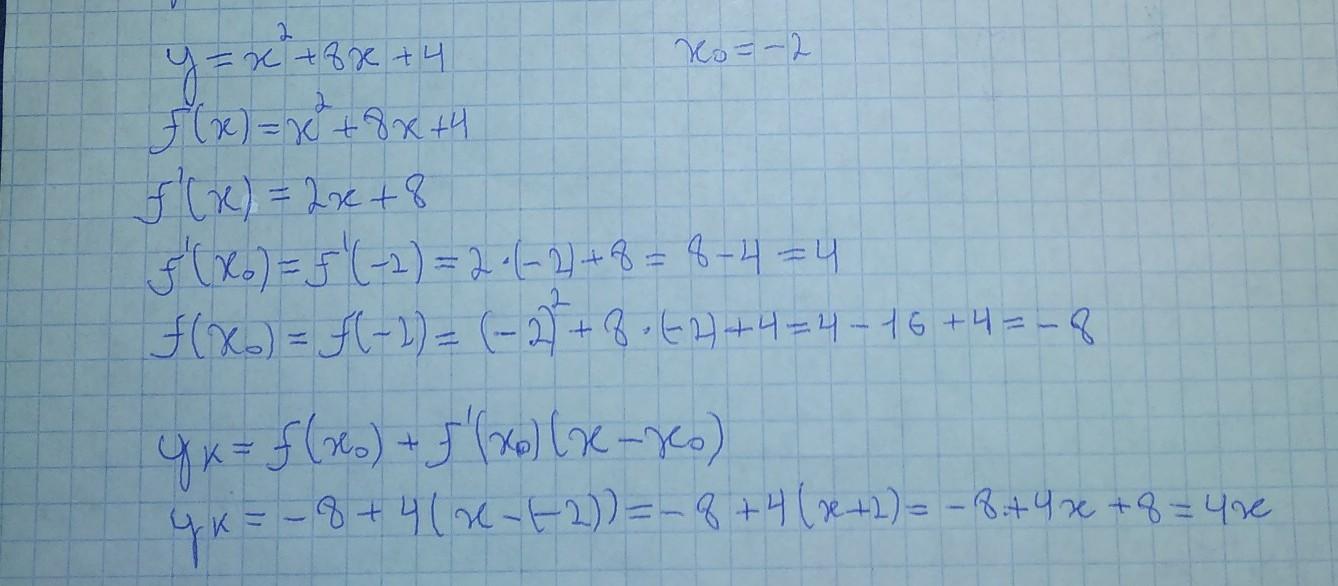 y = x² + 8x + 4 x₀ = -2
f(x) = x² + 8x + 4
f'(x) = 2x + 8
f'(x₀) = f'(-2) = 2·(-2) + 8 = 8 - 4 = 4
f(x₀) = f(-2) = (-2)² + 8·(-2) + 4 = 4 - 16 + 4 = -8
yк = f(x₀) + f'(x₀)(x - x₀)
yк = -8 + 4(x - (-2)) = -8 + 4(x+2) = -8 + 4x + 8 = 4x